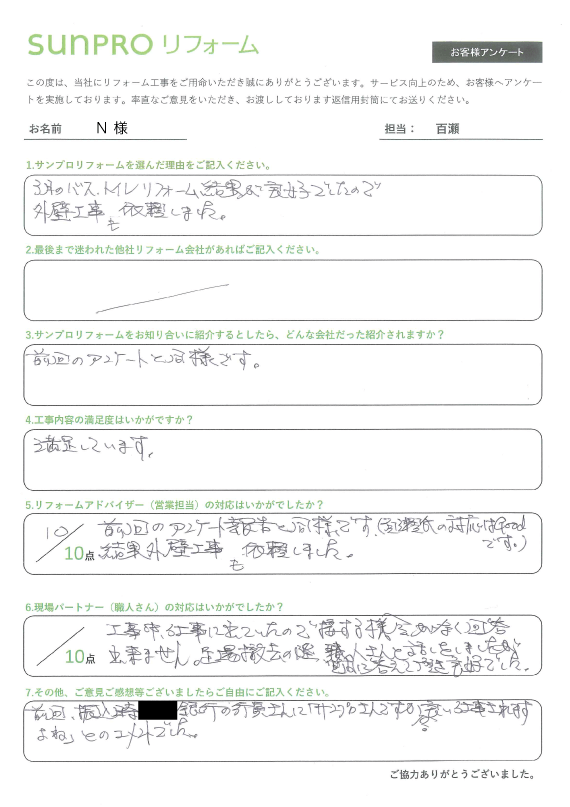 SUNPRO リフォーム
お客様アンケート
この度は、当社にリフォーム工事をご用命いただき誠にありがとうございます。サービス向上のため、お客様へアンケー
トを実施しております。率直なご意見をいただき、お渡ししております返信用封筒にてお送りください。
お名前 N 様 担当： 百瀬
1.サンプロリフォームを選んだ理由をご記入ください。
3月のバス、トイレリフォーム結果 良好でしたので
外壁工事も依頼しました。
2.最後まで迷われた他社リフォーム会社があればご記入ください。
3.サンプロリフォームをお知り合いに紹介するとしたら、どんな会社だった紹介されますか？
前回のアンケートと同様です。
4.工事内容の満足度はいかがですか？
満足しています。
5.リフォームアドバイザー（営業担当）の対応はいかがでしたか？
10/10点
前回のアンケート報告と同様です。(百瀬氏の対応はGood
です。)
結果外壁工事も依頼しました。
6.現場パートナー（職人さん）の対応はいかがでしたか？
/10点
工事中、 工事に出ていたので 回答
出来ません。足場撤去の際、職人さんと話をしましたが
答えて頂き良好でした。
7.その他、ご意見ご感想等ございましたらご自由にご記入ください。
前回、振込時 銀行の行員さんに「サンプロさんですか、良い工事されます
よね」とのコメントでした。
ご協力ありがとうございました。